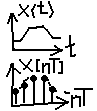 x(t)
t
x[nT]
nT